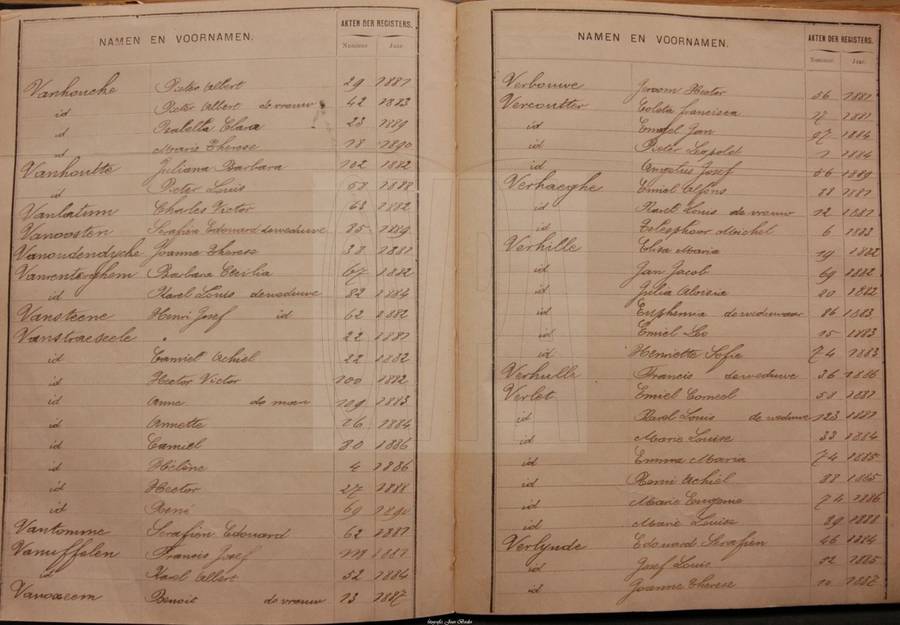 NAMEN EN VOORNAMEN. AKTEN DER REGISTERS.
Nummer Jaar.
Vanhouche Pieter Albert 29 1881
id Pieter Albert de vrouw 42 1883
id Isabella Clara 23 1889
id Marie Therese 18 1890
Vanhoutte Juliana Barbara 102 1882
id Pieter Louis 58 1888
Vanlatum Charles Victor 63 1882
Vanoosten Serafin Edouard de weduwe 85 1889
Vanoudendyche Joanna Therese 38 1881
Vanrenterghem Barbara Cecilia 67 1882
id Karel Louis de weduwe 82 1884
Vansteene Henri Josef id 62 1882
Vanstraeseele 22 1881
id Camiel Achiel 22 1882
id Hector Victor 100 1882
id Anna de man 109 1883
id Annette 26 1884
id Camiel 30 1886
id Hélène 4 1886
id Hector 27 1888
id René 69 1890
Vantomme Serafien Edouard 62 1881
Vanuffelen Francis Josef 1881
id Karel Albert 52 1884
Benoit de vrouw 13 1887
NAMEN EN VOORNAMEN. AKTEN DER REGISTERS.
Nummer. Jaar.
Verbouwe Jeroom Hector 56 1881
Vercoutter Coleta Francisca 17 1881
id Emiel Jan 97 1884
id Pieter Leopold 1 1884
id Augustus Josef 56 1889
Verhaeghe Emiel Alfons 88 1881
id Karel Louis de vrouw 12 1881
id Telesphoor Michel 6 1883
Verhille Eliza Maria 19 1882
id Jan Jacob 69 1882
id Julia Aloisia 80 1882
id Euphemia de weduwaar 86 1883
id Emiel Leo 15 1883
id Henriette Sofie 74 1883
Verhulle Francis de weduwe 36 1886
Verlet Emiel Corneel 58 1881
id Karel Louis de weduwe 123 1881
id Marie Louise 33 1884
id Emma Maria 74 1885
id Remi Achiel 88 1885
id Marie Eugenie 74 1886
id Marie Louise 89 1888
Verlynde Edouard Serafien 46 1884
id Josef Louis 92 1885
id Joanna Therese 10 1887